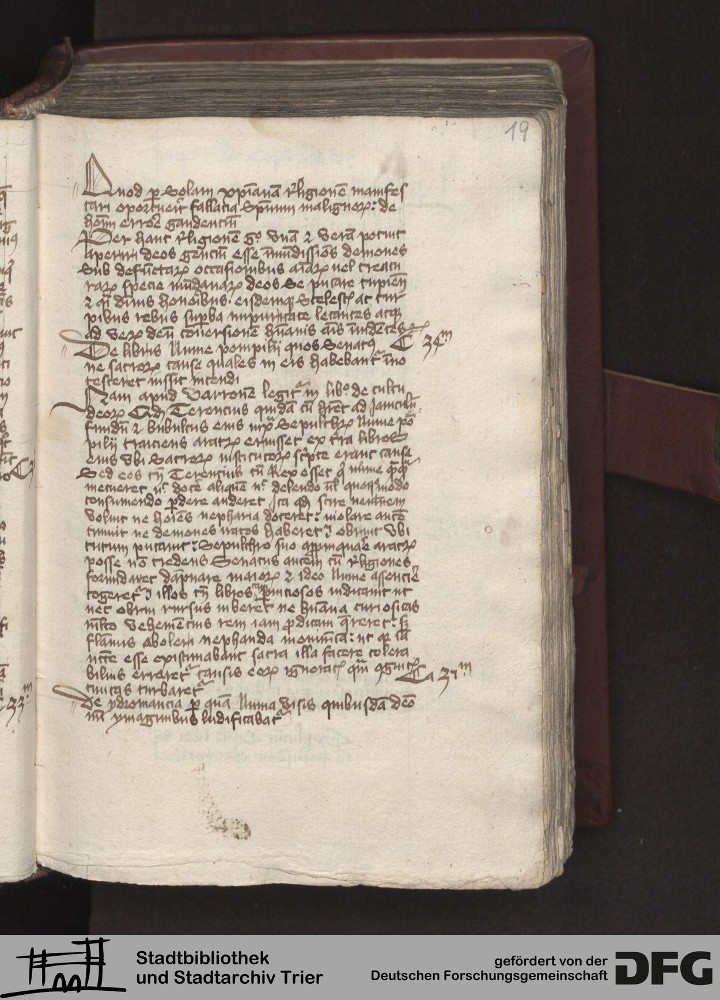 19
Quod p solam xpianam religione manifes
tari oportuerit fallatia spirituum malignor: de
hoim errore gaudencium
Per hanc religione g° una & vera potuit
aperiri deos genciu esse immudissios demones
sub defunctar occasionibus aiar vel creatu
rar specie mudanar deos se putare cupien
& qi divis honoribus eisdemq scelest ac tur
pibus rebus supba impuritate letantes atq
ad ver deu conversione humanis ais invidetes
C 34m
De libris Nume pompilij quos senatus
ne sacror cause quales in eis habebantr ino
tesceret iussit incendi
Nam apud Varrone legitr in lib° de cultu
deor Terencius quida cu heret ad Janiculu
fundu & bubulcus eius iuxta sepulchr Nume po
pilij traiciens aratr eruisset ex tra libros
eius ubi sacror institutor scpte erant cause
Sed eos Terencius
metueret doce alique delendo quoquomodo
consumendo pdere auderet, Ita qd scire nemine
voluit ne hoies nepharia doceret: violare aute
timuit ne demones iratos haberet obruit ubi
tutum putavit: sepulchro suo appinquare aratr
posse no credens Senatus autem cu religiones
formidaret dapnare maior & ideo Nume assenti
cogeret illos tn libros pniciosos iudicavit ut
nec obrui rursus iuberet ne humana curiositas
multo vehemencius rem iam pditam qreret: s
flamis aboleri nephanda monumeta: ut q ia
ncce esse existimabant sacra illa facere tolera
bilius erraretr causis eor ignorat qm cognitis
civitas turbaretr
Ca 35m
De ydromancia p qua Numa visis quibusda deo
ymaginibus ludificabatr
33m
Stadtbibliothek
und Stadtarchiv Trier
gefördert von der
Deutschen Forschungsgemeinschaft
DFG